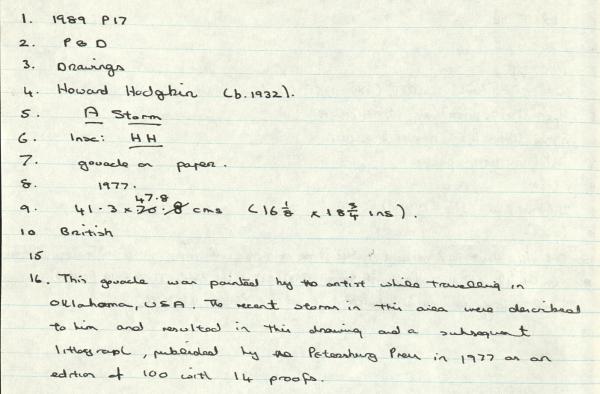 1. 1989 P17
2. P & D
3. Drawings
4. Howard Hodgkin (b.1932).
5. A Storm
6. Insc: HH
7. gouache on paper.
8. 1977.
47.8
9. 41.3 x 70.8 cms (16 1/8 x 18 3/4 ins).
10 British
15
16. This gouache was painted by the artist while travelling in
Oklahoma, USA. The recent storms in this area were described
to him and resulted in this drawing and a subsequent
lithograph, published by the Petersburg Press in 1977 as an
edition of 100 with 14 proofs.